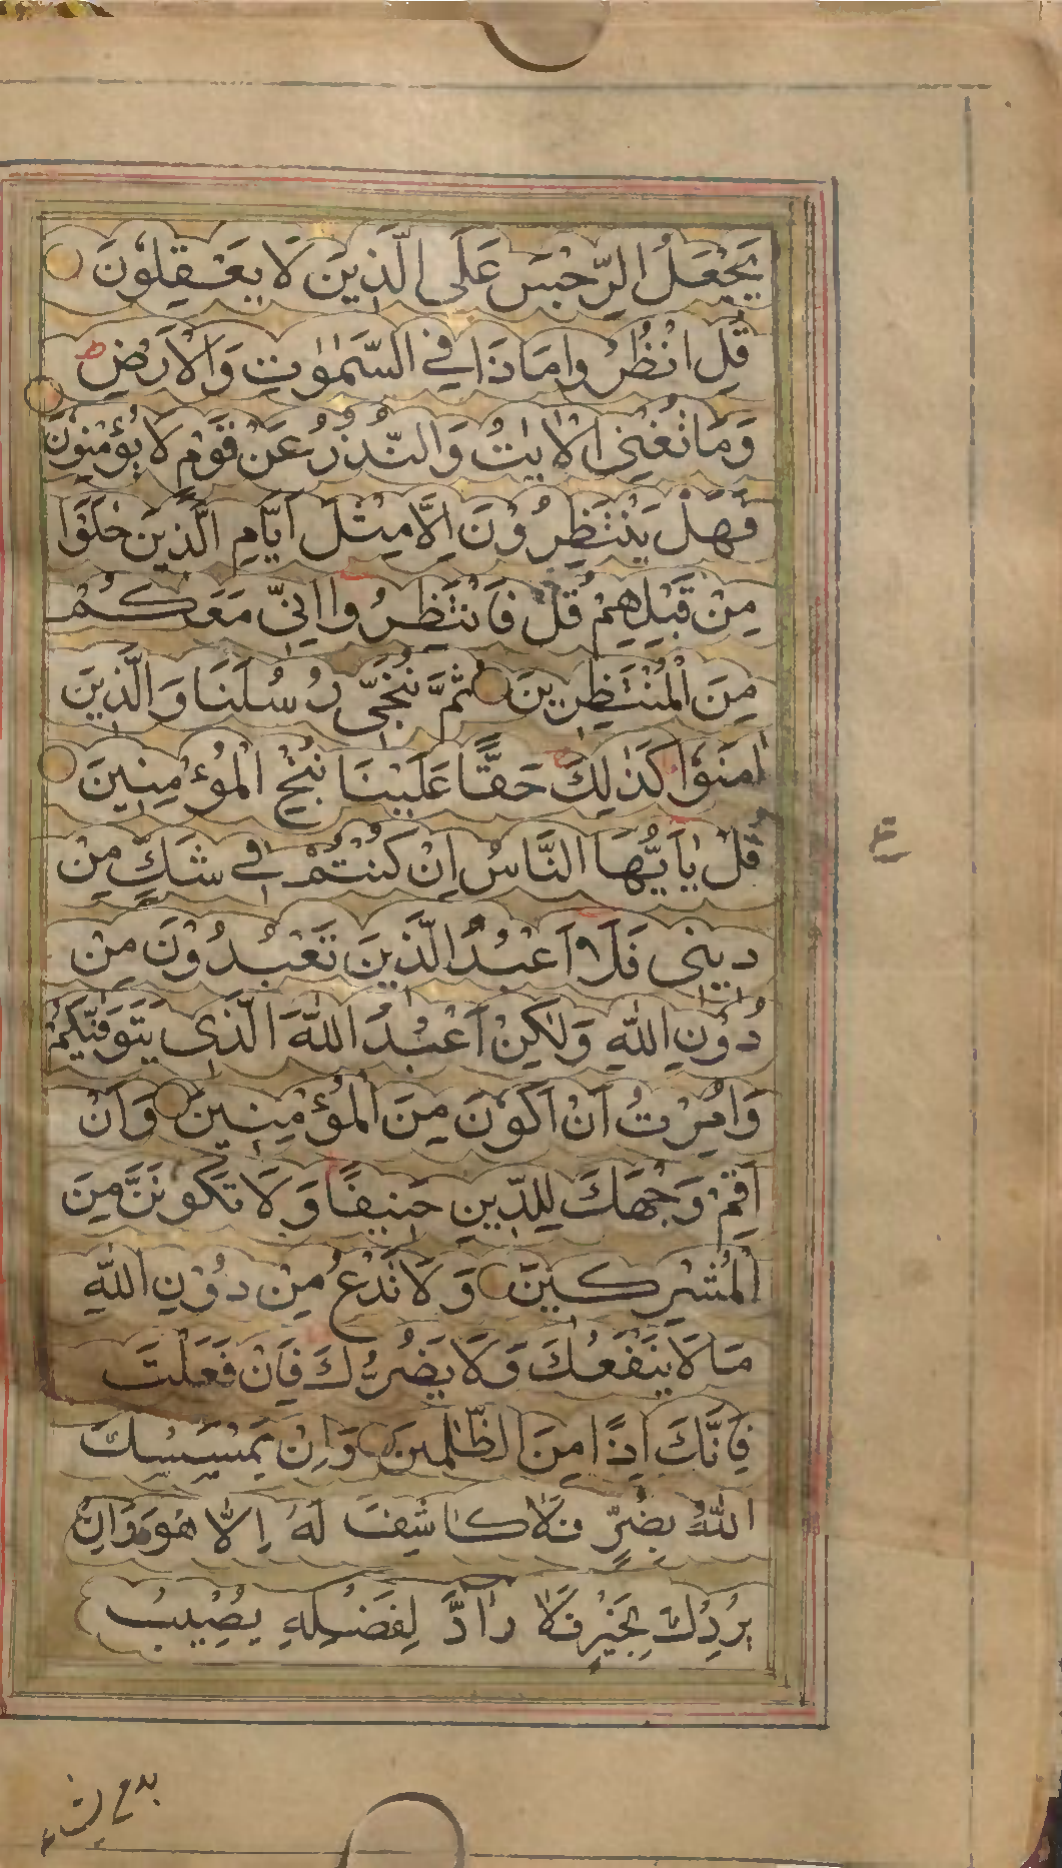 يَجْعَلُ الرِّجْسَ عَلَى الَّذِينَ لَا يَعْقِلُونَ
قُلِ انْظُرُوا مَاذَا فِي السَّمٰوٰتِ وَالْاَرْضِ ط
وَمَا تُغْنِي الْاٰيٰتُ وَالنُّذُرُ عَنْ قَوْمٍ لَا يُؤْمِنُوْنَ
فَهَلْ يَنْتَظِرُوْنَ اِلَّا مِثْلَ اَيَّامِ الَّذِينَ خَلَوْا
مِنْ قَبْلِهِمْ قُلْ فَانْتَظِرُوا اِنِّي مَعَكُمْ
مِنَ الْمُنْتَظِرِينَ ثُمَّ نُنَجِّي رُسُلَنَا وَالَّذِينَ
اٰمَنُوْا كَذٰلِكَ حَقًّا عَلَيْنَا نُنْجِ الْمُؤْمِنِينَ
قُلْ يٰاَيُّهَا النَّاسُ اِنْ كُنْتُمْ فِي شَكٍّ مِنْ
دِينِي فَلَا اَعْبُدُ الَّذِينَ تَعْبُدُوْنَ مِنْ
دُوْنِ اللّٰهِ وَلٰكِنْ اَعْبُدُ اللّٰهَ الَّذِي يَتَوَفّٰيكُمْ
وَاُمِرْتُ اَنْ اَكُوْنَ مِنَ الْمُؤْمِنِينَ وَاَنْ
اَقِمْ وَجْهَكَ لِلدِّينِ حَنِيفًا وَلَا تَكُونَنَّ مِنَ
الْمُشْرِكِينَ وَلَا تَدْعُ مِنْ دُوْنِ اللّٰهِ
مَا لَا يَنْفَعُكَ وَلَا يَضُرُّكَ فَاِنْ فَعَلْتَ
فَاِنَّكَ اِذًا مِنَ الظّٰلِمِينَ وَاِنْ يَمْسَسْكَ
اللّٰهُ بِضُرٍّ فَلَا كَاشِفَ لَهٗ اِلَّا هُوَ وَاِنْ
يُرِدْكَ بِخَيْرٍ فَلَا رَادَّ لِفَضْلِهٖ يُصِيبُ
ع
به من يشاء